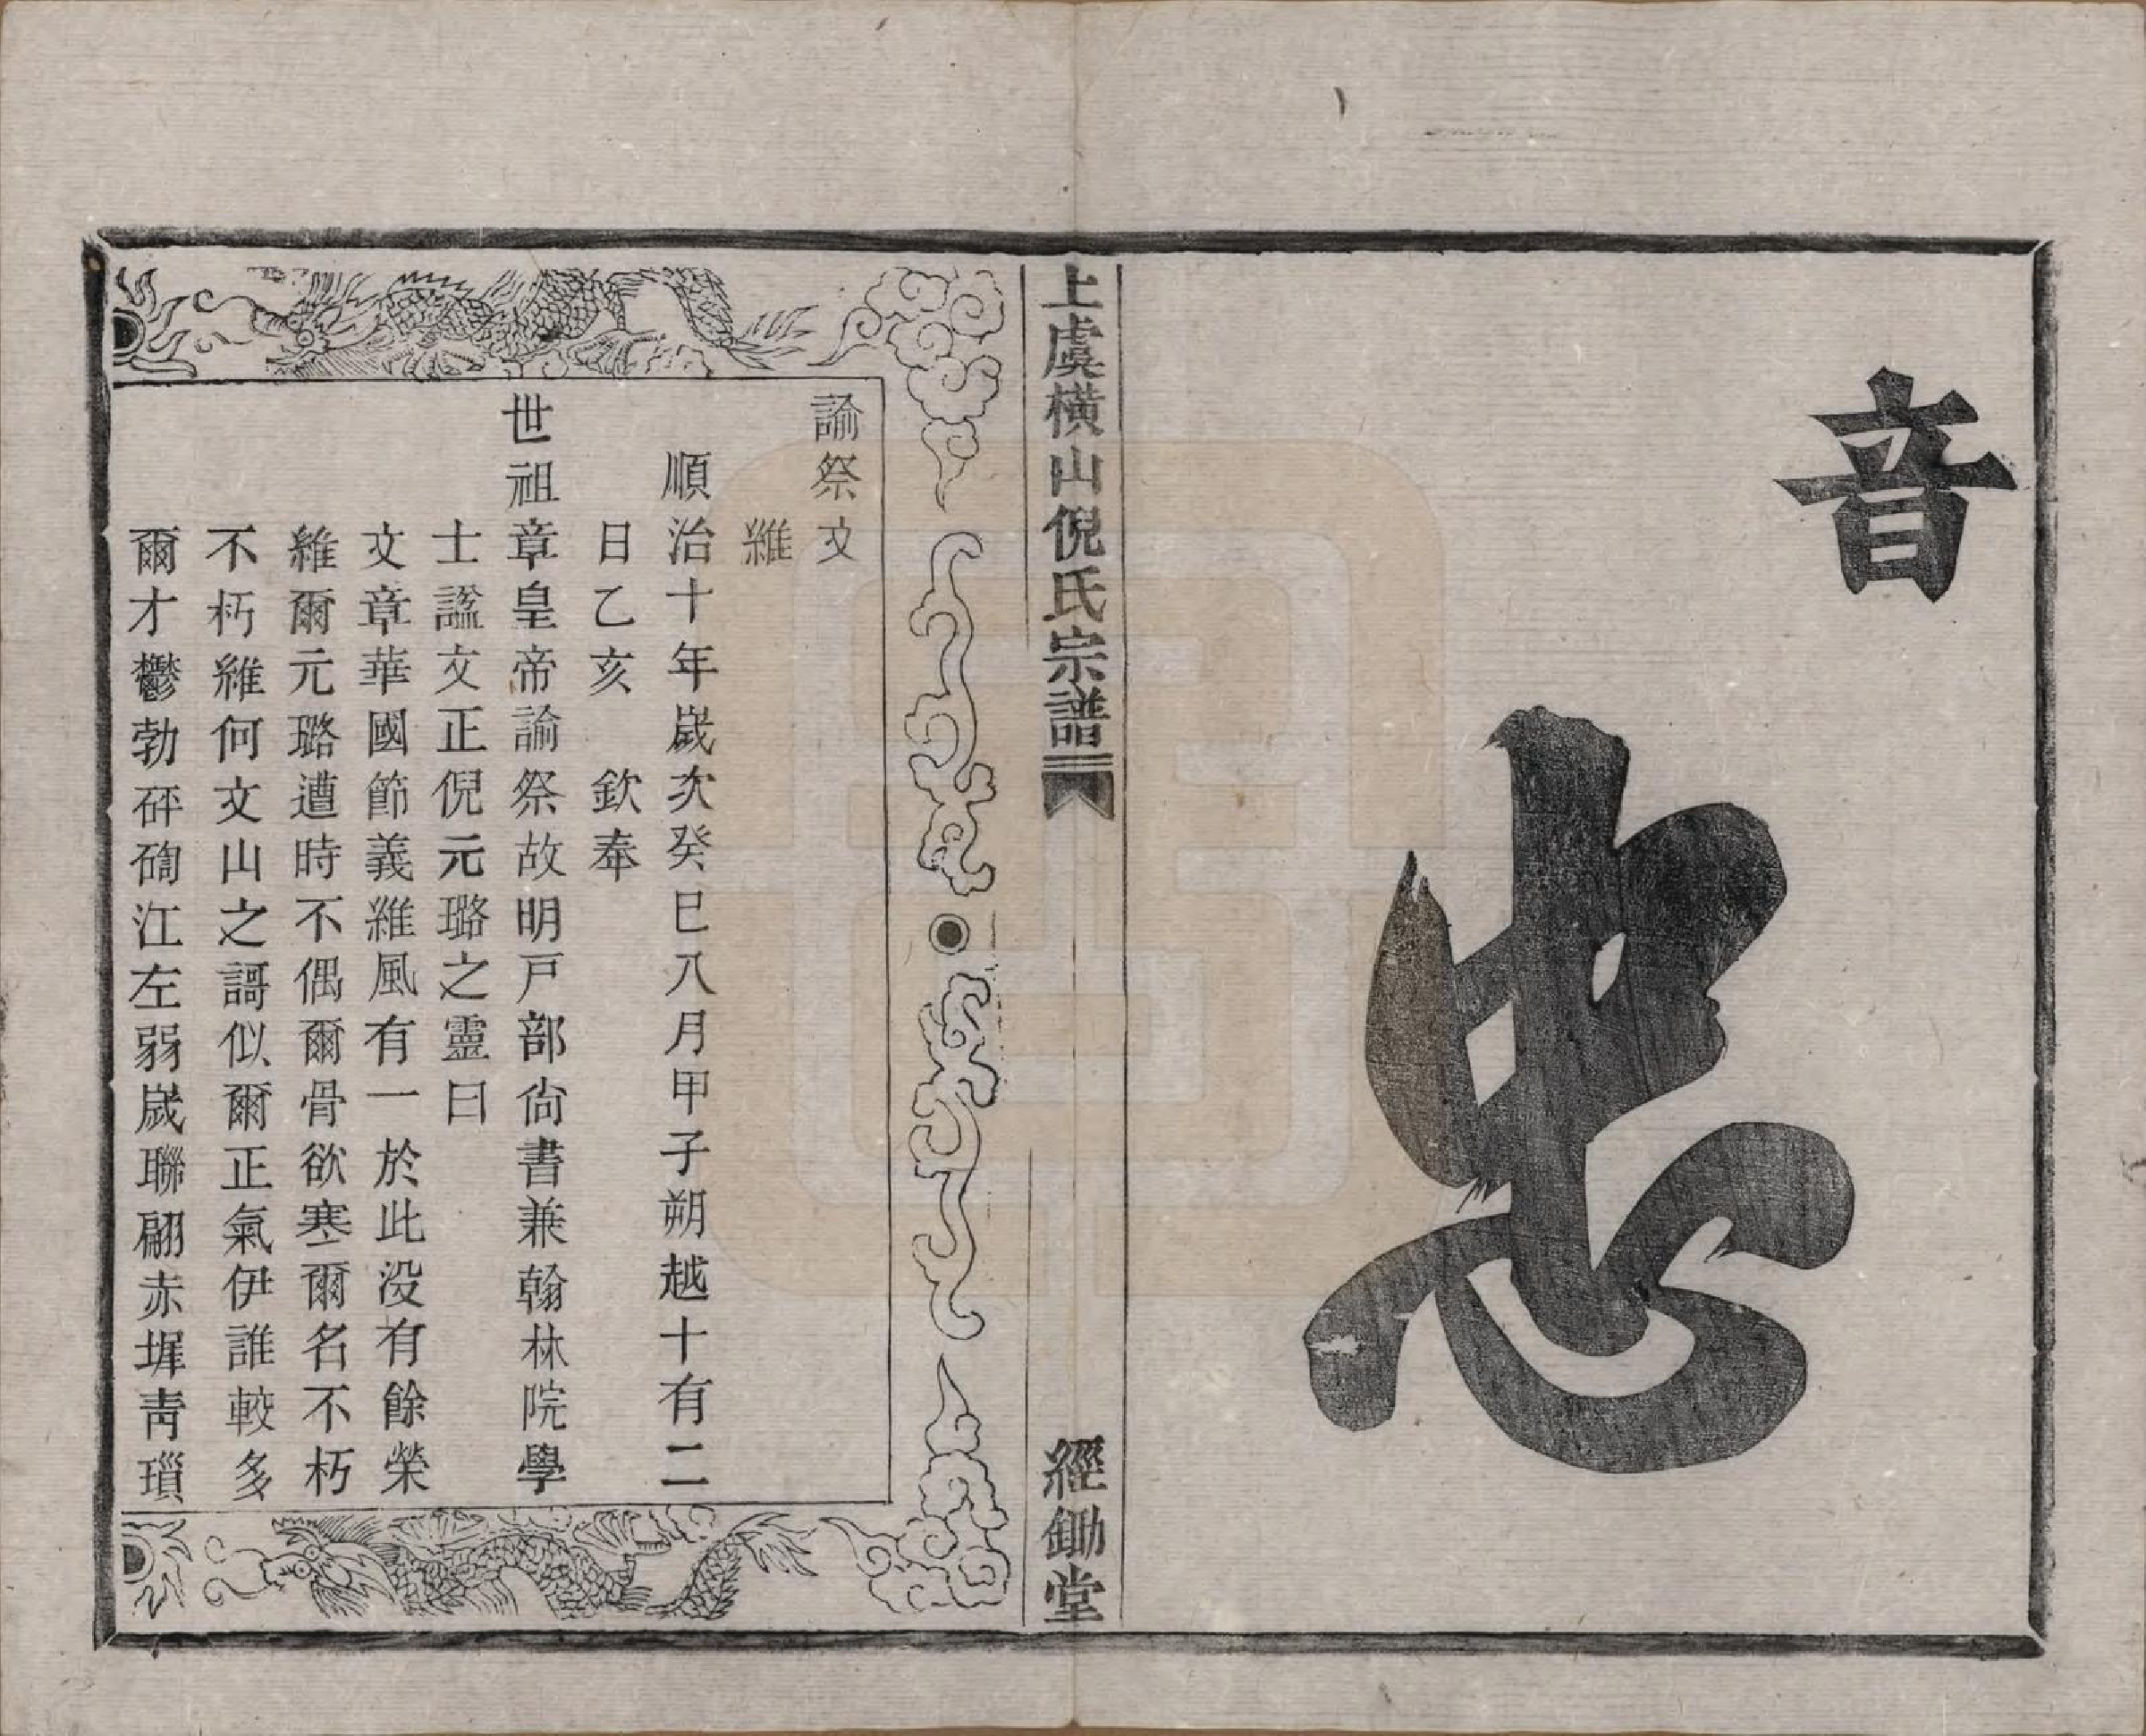 音
忠
上虞橫山倪氏宗譜
經鋤堂
諭祭文
維
順治十年歲次癸巳八月甲子朔越十有二
日乙亥　欽奉
世祖章皇帝諭祭故明戸部尙書兼翰林院學
士諡文正倪元璐之靈曰
文章華國節義維風有一於此没有餘榮
維爾元璐遭時不偶爾骨欲寒爾名不朽
不朽維何文山之謌似爾正氣伊誰較多
爾才鬱勃砰磤江左弱歲聯翩赤墀靑瑣